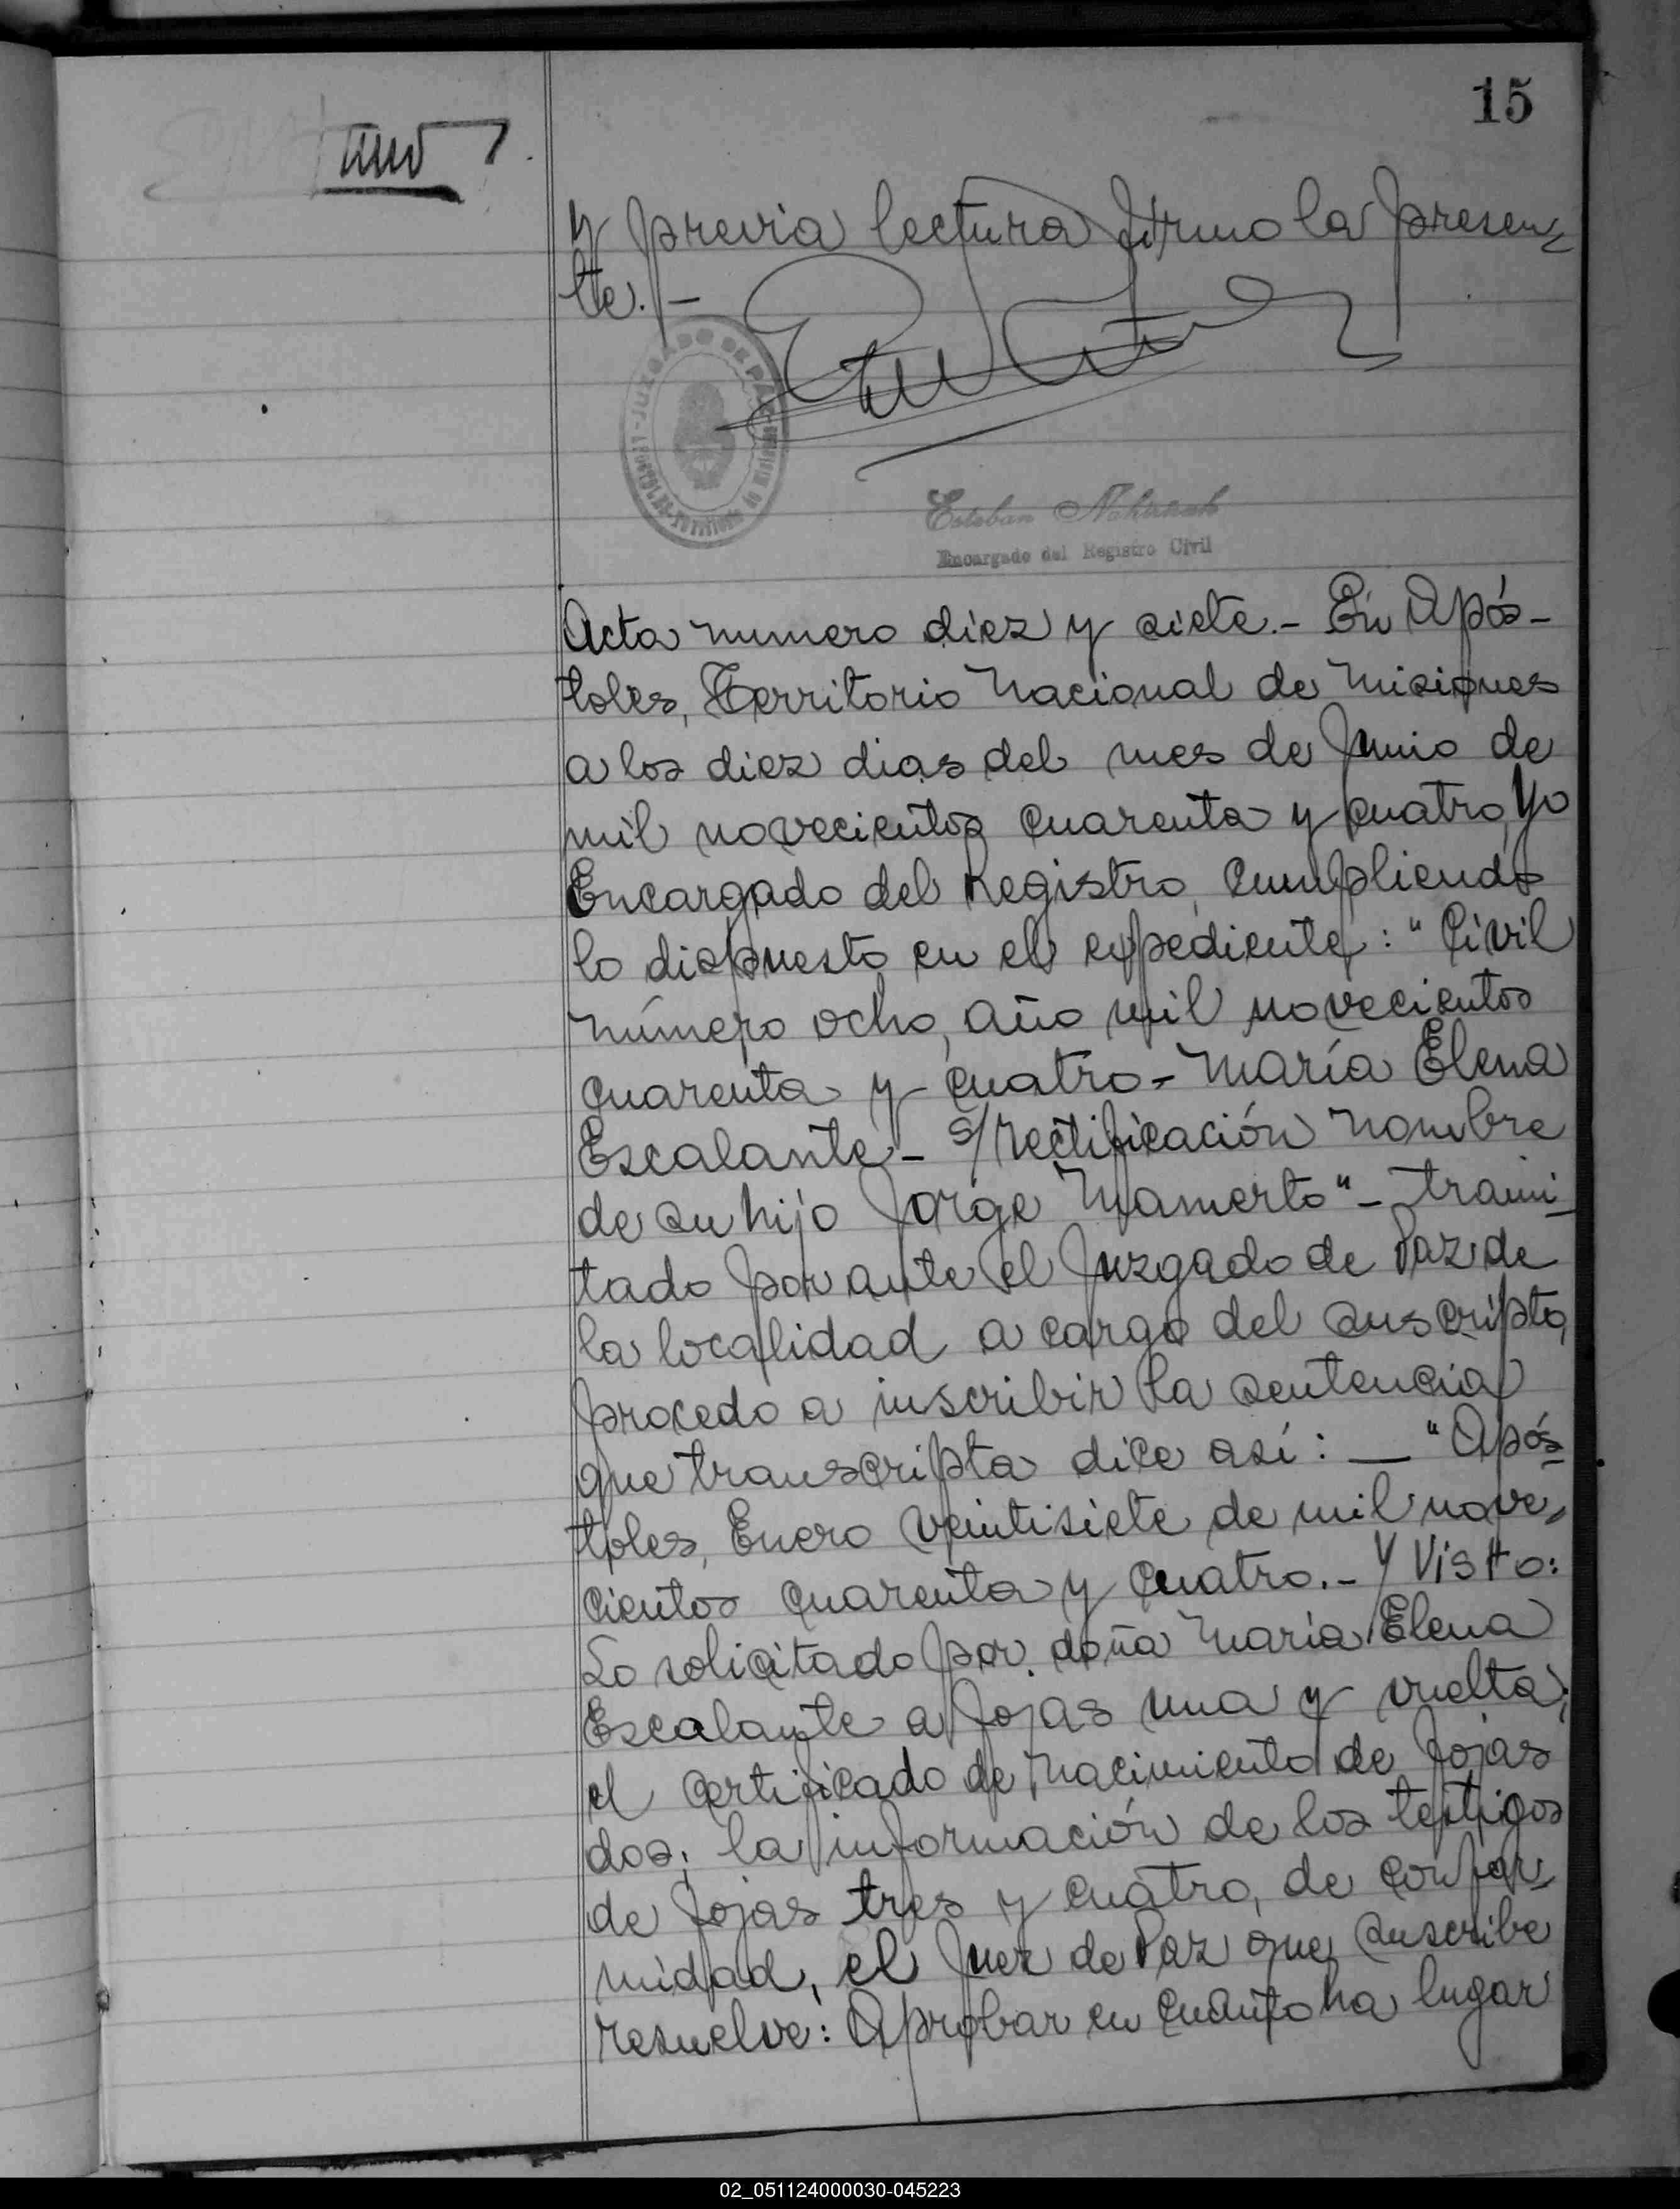 15
y previa lectura firmo la presen-
te.-
JUZGADO DE PAZ
Esteban
Encargado del Registro Civil
Acta numero diez y siete.- En Após-
toles, Territorio Nacional de Misiones
a los diez dias del mes de Junio de
mil novecientos cuarenta y cuatro, Yo
Encargado del Registro, cumpliendo
lo dispuesto en el expediente: "Civil
número ocho, año mil novecientos
cuarenta y cuatro - María Elena
Escalante - s/rectificación nombre
de su hijo Jorge Mamerto" - trami-
tado por ante el Juzgado de Paz de
la localidad a cargo del suscripto,
procedo a inscribir la sentencia
que transcripta dice así: — "Após-
toles, Enero veintisiete de mil nove-
cientos cuarenta y cuatro.- Y Visto:
Lo solicitado por doña María Elena
Escalante a fojas una y vuelta;
el certificado de nacimiento de fojas
dos; la información de los testigos
de fojas tres y cuatro, de confor-
midad, el Juez de Paz que suscribe
resuelve: Aprobar en cuanto ha lugar
02_051124000030-045223